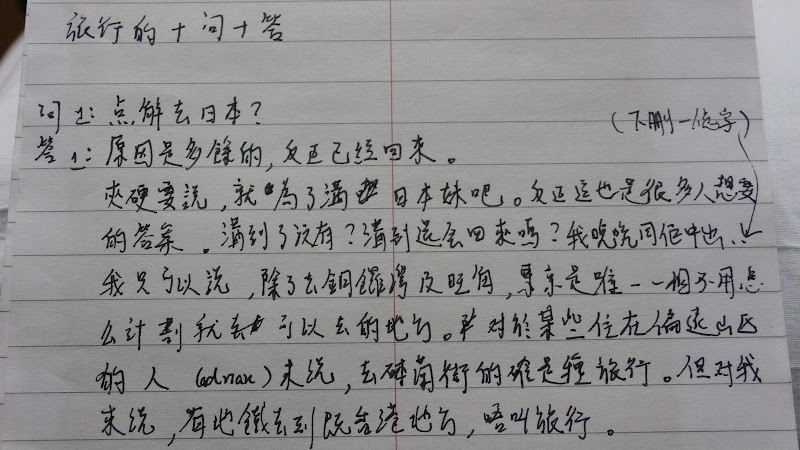 旅行的十问十答
问1: 点解去日本?
(下删一億字)
答1: 原因是多餘的, 反正已经回来。
夾硬要説, 就為了溝日本妹吧。反正這也是很多人想要
的答案。溝到了没有? 溝到還会回來嗎? 我晚晚同佢中出...
我只可以説, 除了去銅鑼灣及旺角, 東京是唯一一個不用怎
么計劃就去可以去的地方。對於某些住在偏遠山区
的人 ( ) 来説, 去砵蘭街的確是種旅行。但对我
来説, 有地鐵去到既香港地方, 唔叫旅行。